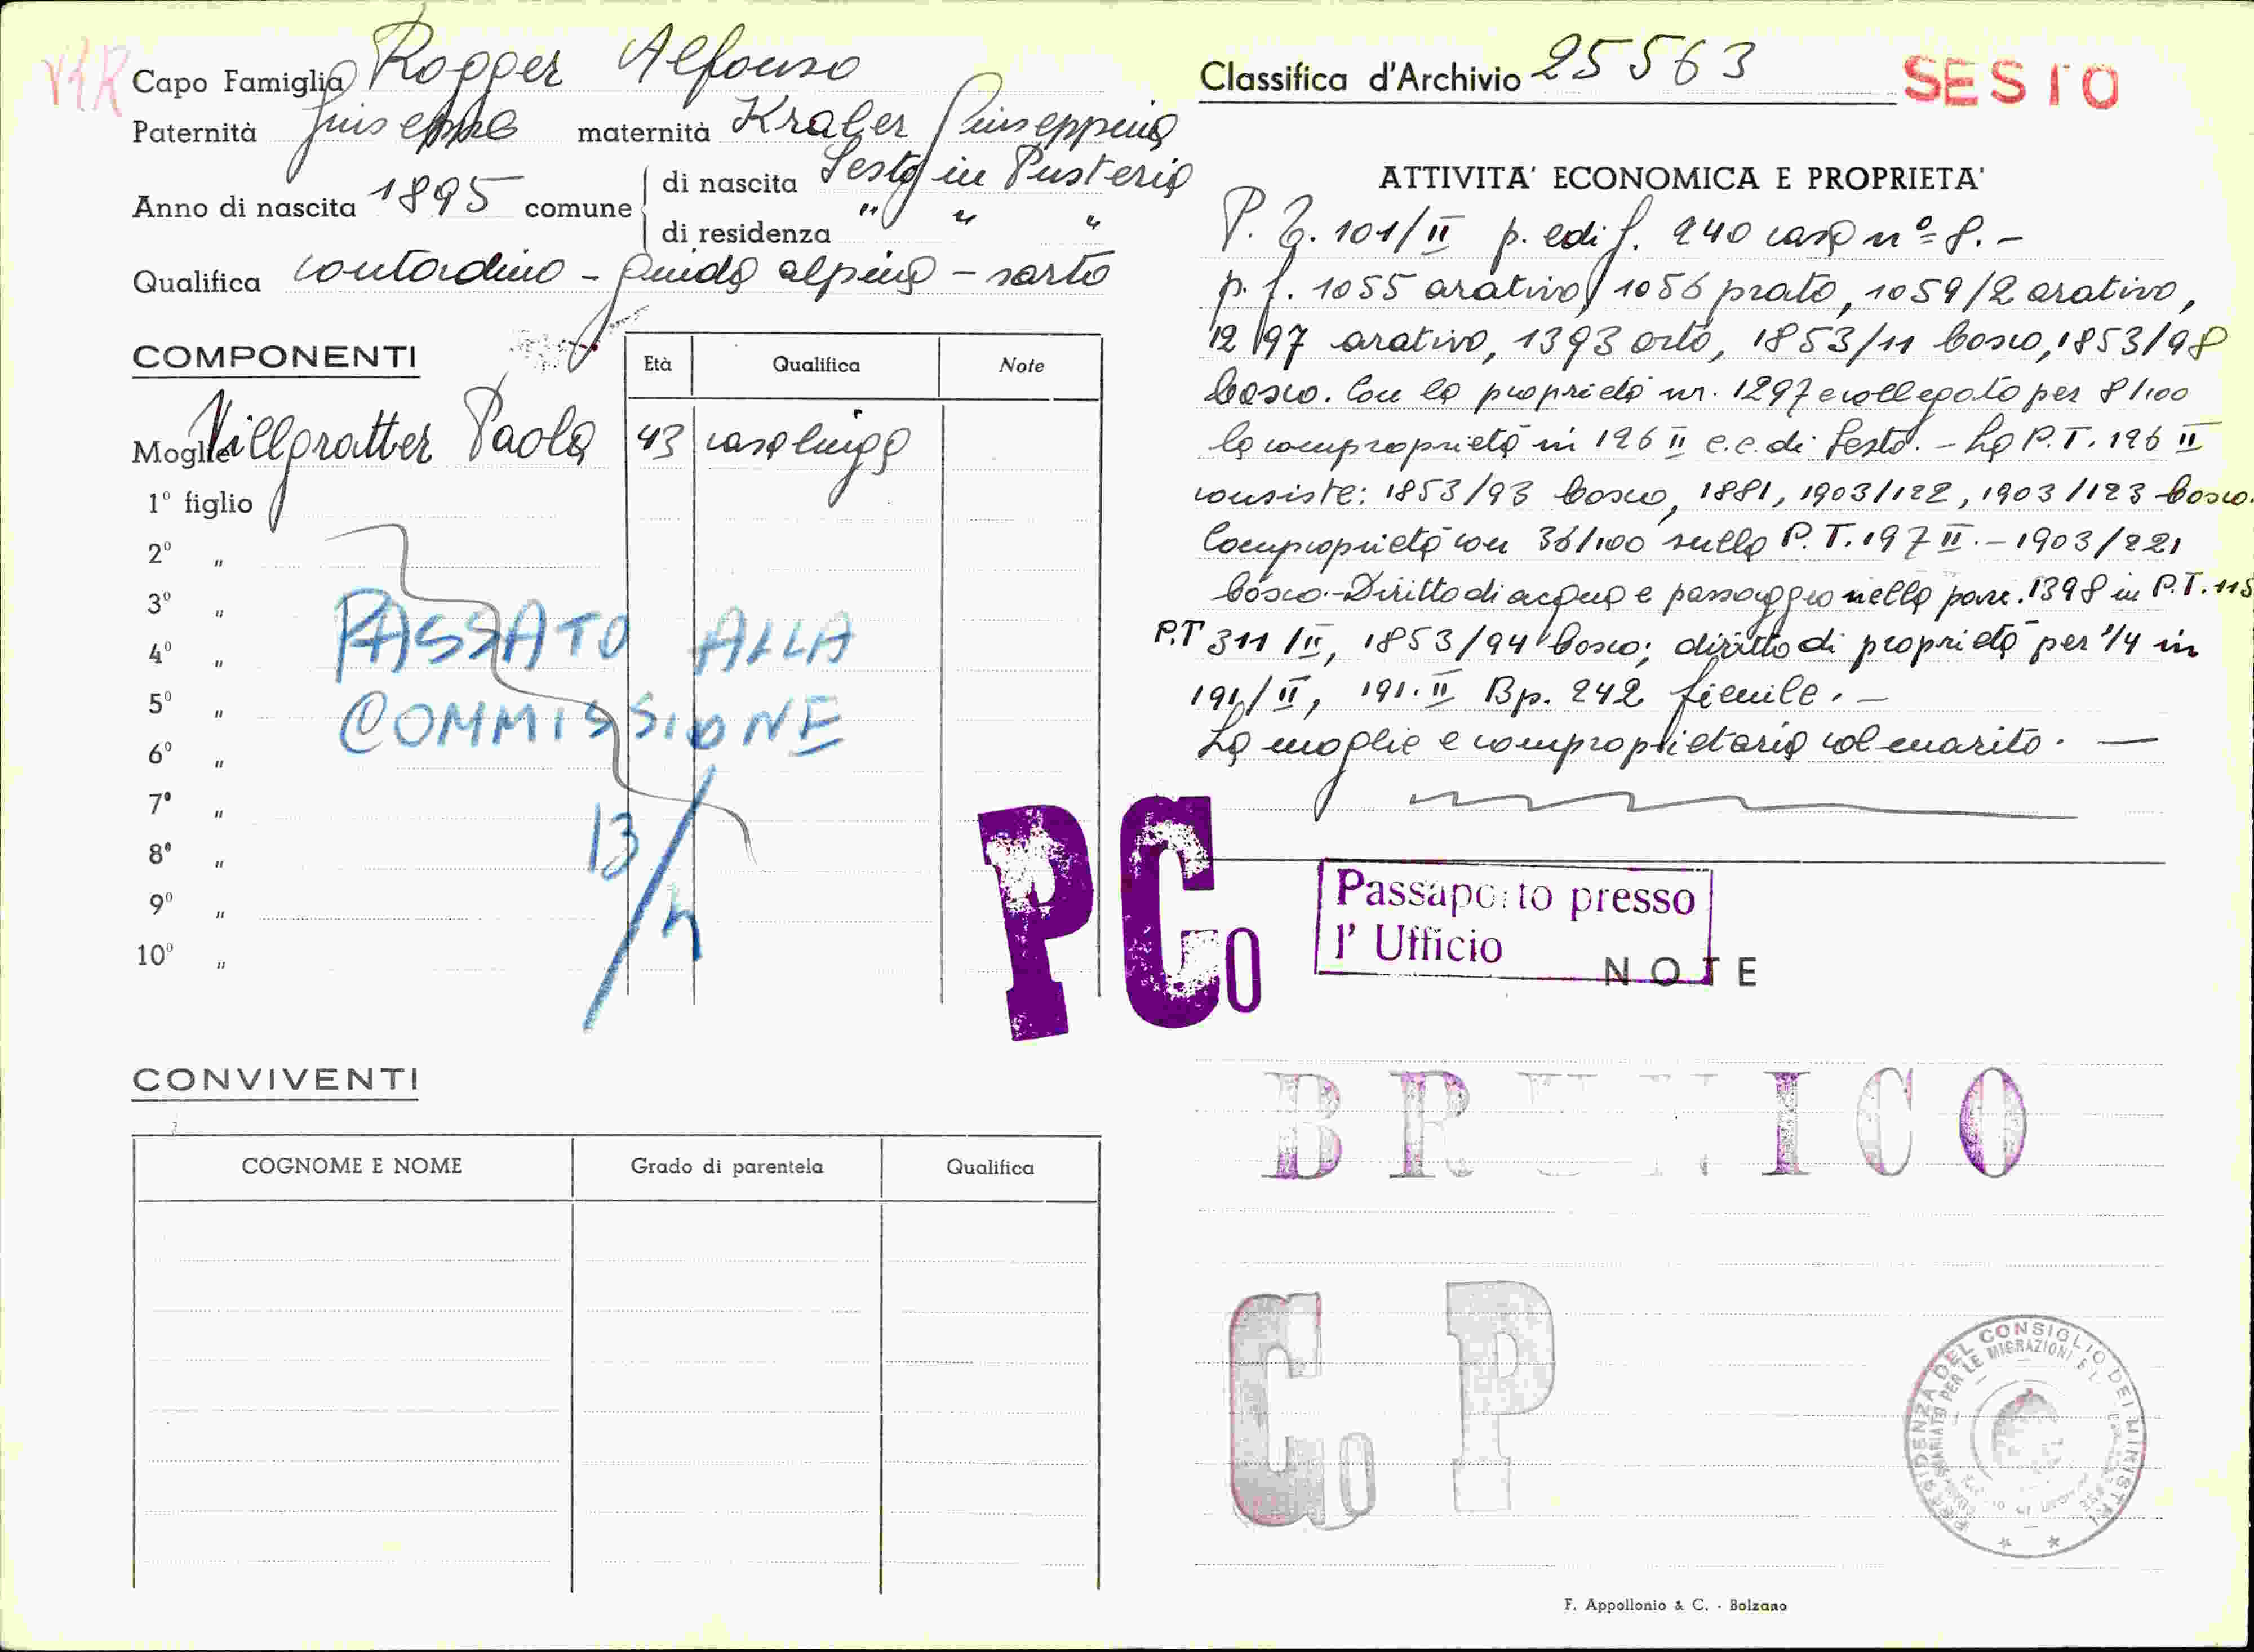 V1R
Capo Famiglia Rogger Alfonso
Paternità Giuseppe maternità Kraler Giuseppina
Anno di nascita 1895 comune di nascita Sesto in Pusteria
di residenza " " "
Qualifica contadino - guida alpina - sarto
COMPONENTI
Età Qualifica Note
Moglie Villgratter Paola 43 casalinga
1º figlio
2º "
3º "
4º "
5º "
6º "
7º "
8º "
9º "
10º "
PASSATO ALLA
COMMISSIONE
13/
CONVIVENTI
COGNOME E NOME Grado di parentela Qualifica
Classifica d'Archivio 25563
SESTO
ATTIVITA' ECONOMICA E PROPRIETA'
P. T. 101/II p. edif. 240 casa nº= 8. -
p. f. 1055 arativo, 1056 prato, 1059/2 arativo,
1297 arativo, 1393 orto, 1853/11 bosco, 1853/98
bosco. Con la proprietà nr. 1297 e collegato per 8/100
la comproprietà in 196 II c.c. di Sesto. - La P.T. 196 II
consiste: 1853/93 bosco, 1881, 1903/122, 1903/123 bosco.
Comproprietà con 36/100 sulla P.T. 197 II. - 1903/221
bosco. - Diritto di acqua e passaggio nella parc. 1398 in P.T. 115
P.T 311/II, 1853/94 bosco; diritto di proprietà per 1/4 in
191/II, 191. II Bp. 242 fienile. -
La moglie e comproprietaria col marito. -
PCo
Passaporto presso
l' Ufficio
NOTE
BRUNICO
Co P
PRESIDENZA DEL CONSIGLIO DEI MINISTRI
PER LE MIGRAZIONI E L
F. Appollonio & C. - Bolzano